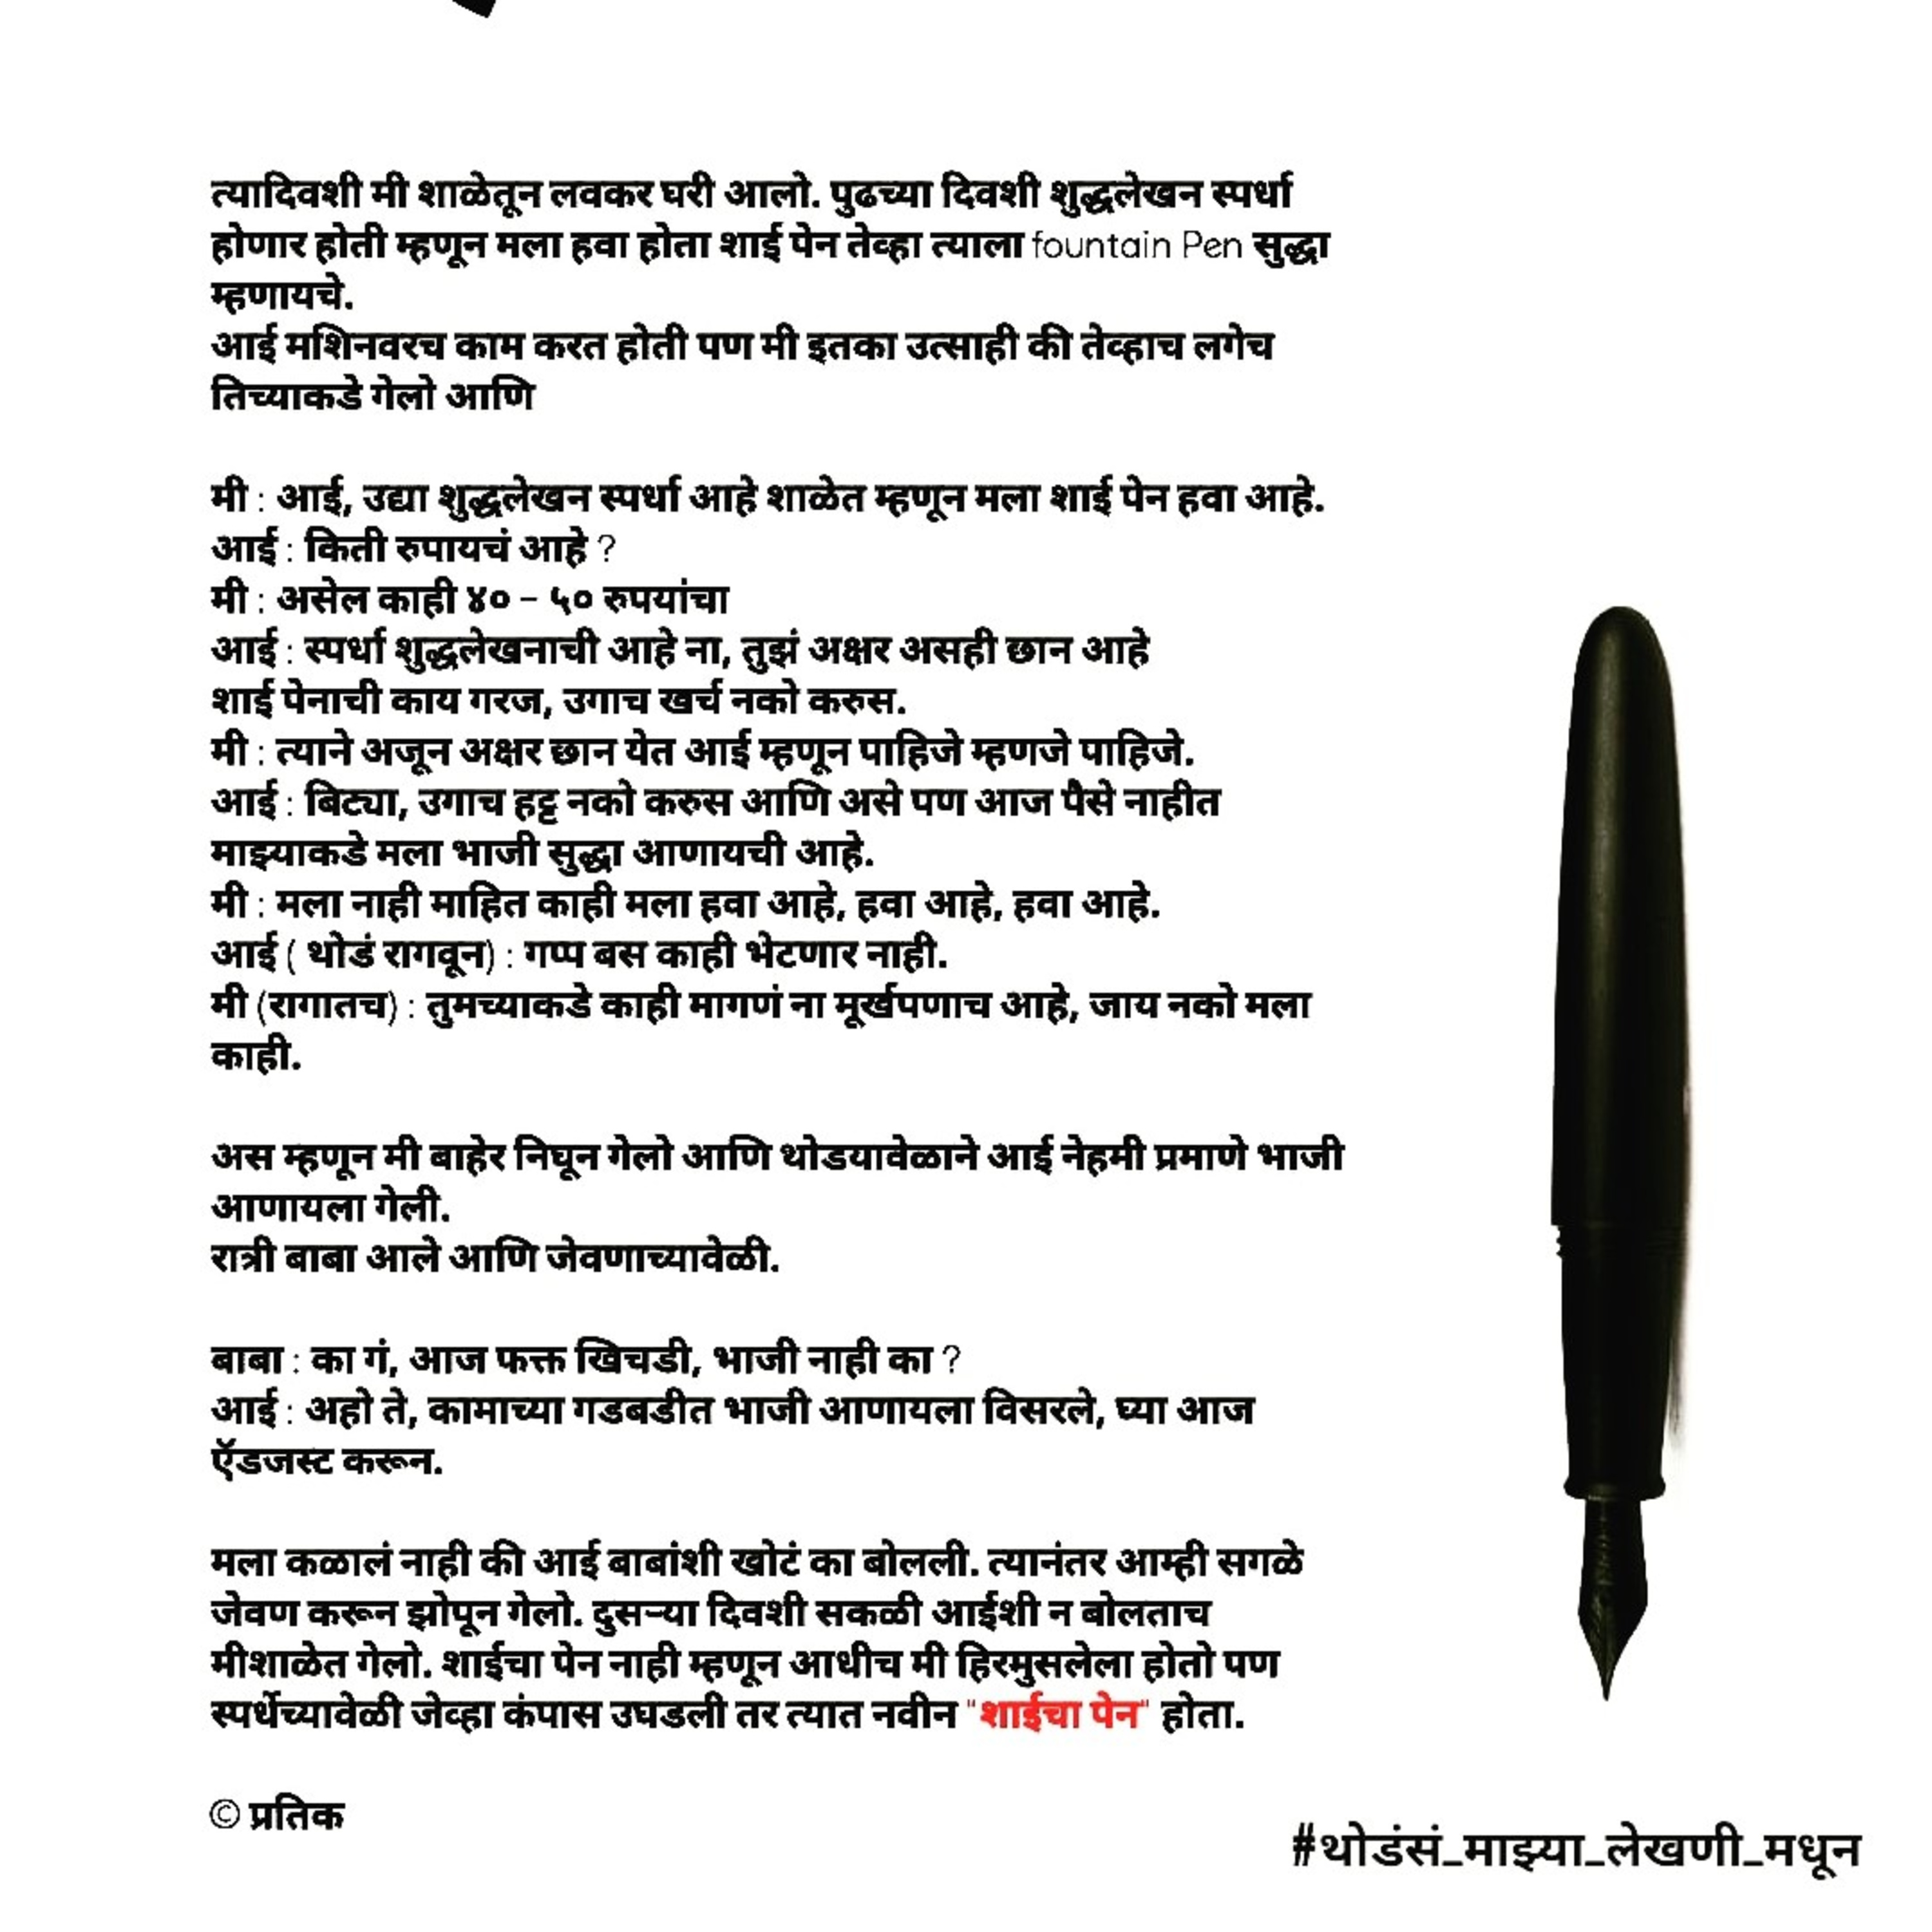 त्यादिवशी मी शाळेतून लवकर घरी आलो. पुढच्या दिवशी शुद्धलेखन स्पर्धा
होणार होती म्हणून मला हवा होता शाई पेन तेव्हा त्याला fountain Pen सुद्धा
म्हणायचे.
आई मशिनवरच काम करत होती पण मी इतका उत्साही की तेव्हाच लगेच
तिच्याकडे गेलो आणि
मी : आई, उद्या शुद्धलेखन स्पर्धा आहे शाळेत म्हणून मला शाई पेन हवा आहे.
आई : किती रुपायचं आहे ?
मी : असेल काही ४० - ५० रुपयांचा
आई : स्पर्धा शुद्धलेखनाची आहे ना, तुझं अक्षर असही छान आहे
शाई पेनाची काय गरज, उगाच खर्च नको करुस.
मी : त्याने अजून अक्षर छान येत आई म्हणून पाहिजे म्हणजे पाहिजे.
आई : बिट्या, उगाच हट्ट नको करुस आणि असे पण आज पैसे नाहीत
माझ्याकडे मला भाजी सुद्धा आणायची आहे.
मी : मला नाही माहित काही मला हवा आहे, हवा आहे, हवा आहे.
आई ( थोडं रागवून) : गप्प बस काही भेटणार नाही.
मी (रागातच) : तुमच्याकडे काही मागणं ना मूर्खपणाच आहे, जाय नको मला
काही.
अस म्हणून मी बाहेर निघून गेलो आणि थोडयावेळाने आई नेहमी प्रमाणे भाजी
आणायला गेली.
रात्री बाबा आले आणि जेवणाच्यावेळी.
बाबा : का गं, आज फक्त खिचडी, भाजी नाही का ?
आई : अहो ते, कामाच्या गडबडीत भाजी आणायला विसरले, घ्या आज
ऍडजस्ट करून.
मला कळालं नाही की आई बाबांशी खोटं का बोलली. त्यानंतर आम्ही सगळे
जेवण करून झोपून गेलो. दुसऱ्या दिवशी सकळी आईशी न बोलताच
मीशाळेत गेलो. शाईचा पेन नाही म्हणून आधीच मी हिरमुसलेला होतो पण
स्पर्धेच्यावेळी जेव्हा कंपास उघडली तर त्यात नवीन "शाईचा पेन" होता.
© प्रतिक
#थोडंसं_माझ्या_लेखणी_मधून